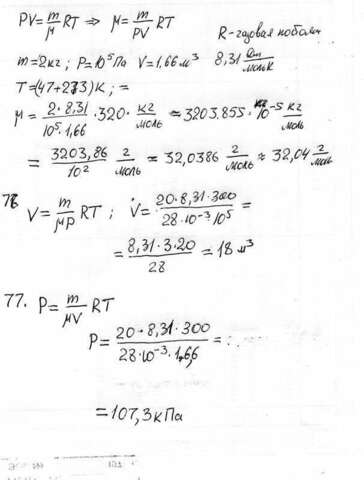 PV = m/μ RT ⇒ μ = m/PV RT
R - газовая
m = 2кг; P = 10⁵ Па V = 1,66 м³ 8,31 Дж/моль·К
T = (47 + 273) К; =
μ = 2 · 8,31/10⁵ · 1,66 · 320 · кг/моль ≈ 3203.855 · 10⁻⁵ кг/моль
= 3203,86/10² г/моль ≈ 32,0386 г/моль ≈ 32,04 г/моль
V = m/μP RT; V = 20 · 8,31 · 300/28 · 10⁻³ 10⁵ =
= 8,31 · 3 · 20/28 = 18 м³
77. P = m/μV RT
P = 20 · 8,31 · 300/28 · 10⁻³ · 1,66 =
= 107,3 кПа